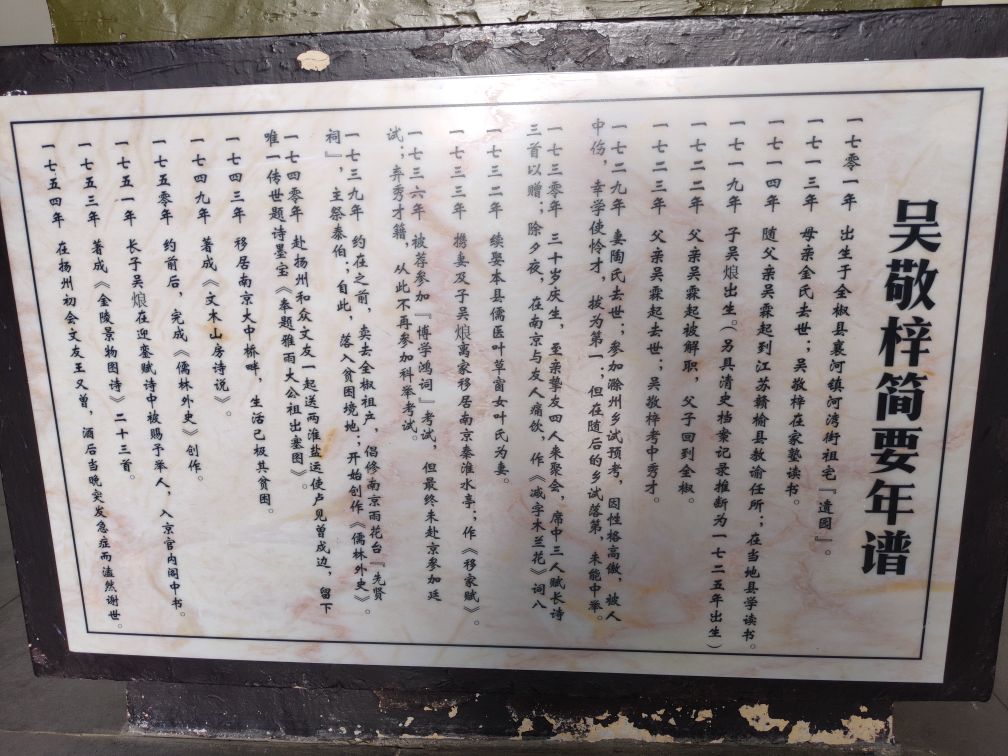 吴敬梓简要年谱
一七零一年 出生于全椒县襄河镇河湾街祖宅『遗园』。
一七一三年 母亲金氏去世；吴敬梓在家塾读书。
一七一四年 随父亲吴霖起到江苏赣榆县教谕任所；在当地县学读书。
一七一九年 子吴烺出生。（另具清史档案记录推断为一七二五年出生）
一七二二年 父亲吴霖起被解职，父子回到全椒。
一七二三年 父亲吴霖起去世；吴敬梓考中秀才。
一七二九年 妻陶氏去世；参加滁州乡试预考，因性格高傲，被人
中伤，幸学使怜才，拔为第一；但在随后的乡试落第，未能中举。
一七三零年 三十岁庆生，至亲挚友四人来聚会，席中三人赋长诗
三首以赠；除夕夜，在南京与友人痛饮，作《减字木兰花》词八
一七三二年 续娶本县儒医叶草窗女叶氏为妻。
一七三三年 携妻及子吴烺离家移居南京秦淮水亭；作《移家赋》。
一七三六年 被荐参加『博学鸿词』考试，但最终未赴京参加廷
试；弃秀才籍，从此不再参加科举考试。
一七三九年 约在之前，卖去全椒祖产，倡修南京雨花台『先贤
祠』，主祭泰伯；自此，落入贫困境地；开始创作《儒林外史》。
一七四零年 赴扬州和众文友一起送两淮盐运使卢见曾戍边，留下
唯一传世题诗墨宝《奉题雅雨大公祖出塞图》。
一七四三年 移居南京大中桥畔，生活已极其贫困。
一七四九年 著成《文木山房诗说》。
一七五零年 约前后，完成《儒林外史》创作。
一七五一年 长子吴烺在迎銮赋诗中被赐予举人，入京官内阁中书。
一七五三年 著成《金陵景物图诗》二十三首。
一七五四年 在扬州初会文友王又曾，酒后当晚突发急症而溘然谢世。